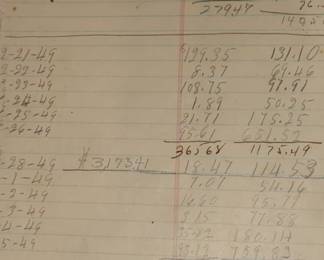 279.47 26.
140.5
2-21-49 $129.35 131.10
2-22-49 8.37 69.46
2-23-49 108.75 97.91
2-24-49 1.89 50.25
2-25-49 21.71 175.25
2-26-49 95.61 651.52
365.68 1175.49
2-28-49 $317341 18.47 114.53
-1-49 7.07 54.16
-2-49 16.60 95.77
-3-49 3.15 77.88
-4-49 180.14
5-49 759.82